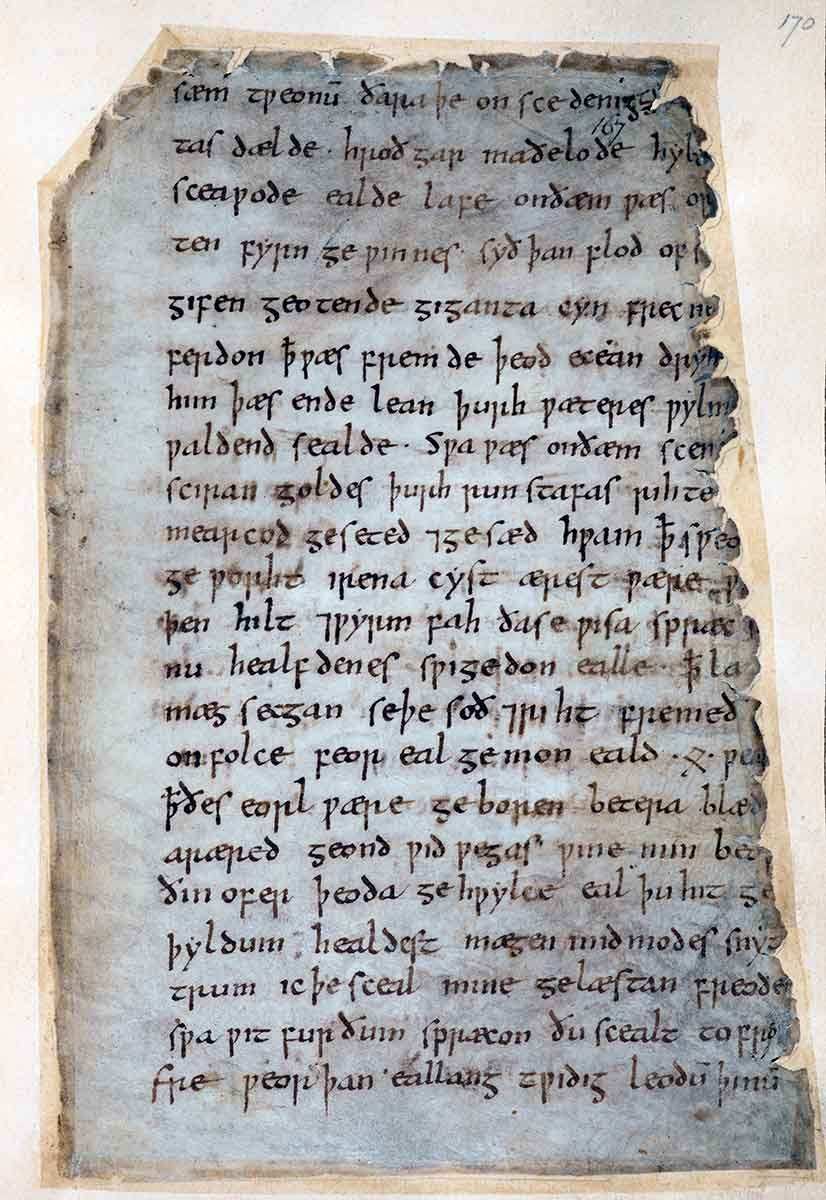 170
sæm tƿeonū ðara þe on scedenigg
167
tas dælde · hroð gar maðelode hyl
sceaƿode ealde lafe onðæm ƿæs or
ten fyrn ge ƿinnes · syð þan flod of s
gifen geotende giganta cyn frecn
ferdon ꝥ ƿæs fremde þeod ecean dryh
him þæs ende lean þurh ƿæteres ƿylm
ƿaldend sealde · Sƿa ƿæs onðæm scen
sciran goldes þurh run stafas rihte
mearcod ge seted ⁊ge sæd hƿam ꝥ sƿeo
ge ƿorht irena cyst ærest ƿære
þen hilt ⁊ƿyrm fah ða se ƿisa spræc
nu healfdenes sƿigedon ealle · ꝥ la
mæg secgan seþe soð ⁊riht fremeð
on folce feor eal ge mon eald ·ᛟ· ƿea
ꝥ ðes eorl ƿære ge boren betera blæd
aræred geond ƿid ƿegas ƿine min
ðin ofer þeoda ge hƿylce eal þu hit ge
þyldum healdest mægen mid modes snyt
trum ic þe sceal mine gelæstan freode
sƿa ƿit furðum spræcon ðu scealt to fro
fre ƿeorþan eallang tƿidig leodū þinū